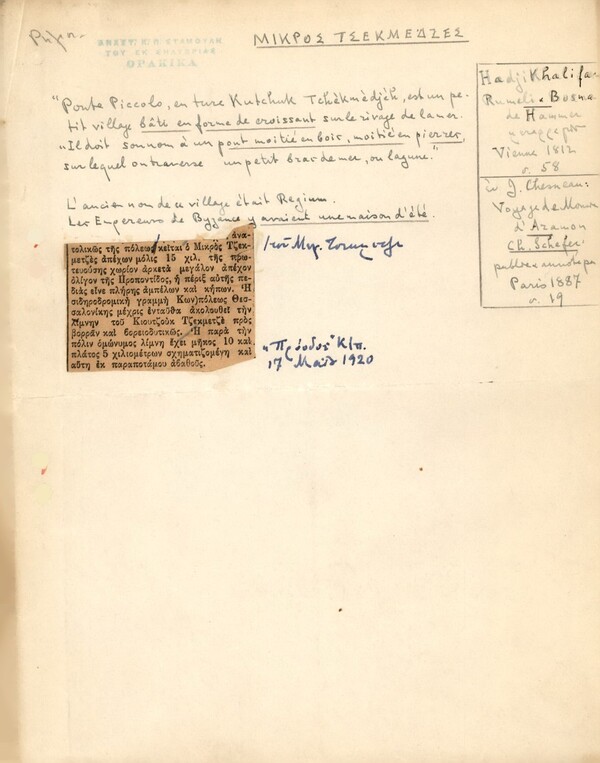 Ρήγιον
ΑΡΧΕΙΟΝ Κ.Π. ΣΤΑΜΟΥΛΗ
ΘΡΑΚΙΚΑ
ΜΙΚΡΟΣ ΤΣΕΚΜΕΔΖΕΣ
"Ponte Piccolo, en turc Kutchuk Tchekmèdjéh, est un pe-
tit village bâti en forme de croissant sur le rivage de la mer.
"Il doit son nom à un pont moitié en bois, moitié en pierres,
sur lequel on traverse un petit bras de mer, ou lagune."
L'ancien nom de ce village était Regium.
Les Empereurs de Byzance y avaient une maison d'été.
Hadji Khalifa
Rumeli e Bosna
de Hammer
Vienne 1812
σ. 58
Ἐν J. Chesneau:
Voyage de Mons
d'Aramon
Ch. Schefer
Paris 1887
σ. 19
ἀνα-
τολικῶς τῆς πόλεως κεῖται ὁ Μικρὸς Τζεκ-
μετζὲς ἀπέχων μόλις 15 χιλ. τῆς πρω-
τευούσης χωρίον ἀρκετὰ μεγάλον ἀπέχον
ὀλίγον τῆς Προποντίδος, ἡ πέριξ αὐτῆς πε-
διὰς εἶνε πλήρης ἀμπέλων καὶ κήπων. Ἡ
σιδηροδρομικὴ γραμμὴ Κων)πόλεως Θεσ-
σαλονίκης μέχρις ἐνταῦθα ἀκολουθεῖ τὴν
λίμνην τοῦ Κιουτζοὺκ Τζεκμετζὲ πρὸς
βορρᾶν καὶ βορειοδυτικῶς. Ἡ παρὰ τὴν
πόλιν ὁμώνυμος λίμνη ἔχει μῆκος 10 καὶ
πλάτος 5 χιλιομέτρων σχηματιζομένη καὶ
αὕτη ἐκ παραποτάμου ἀβαθοῦς.
"Πρόοδος" Κ/π.
17 Μαΐου 1920